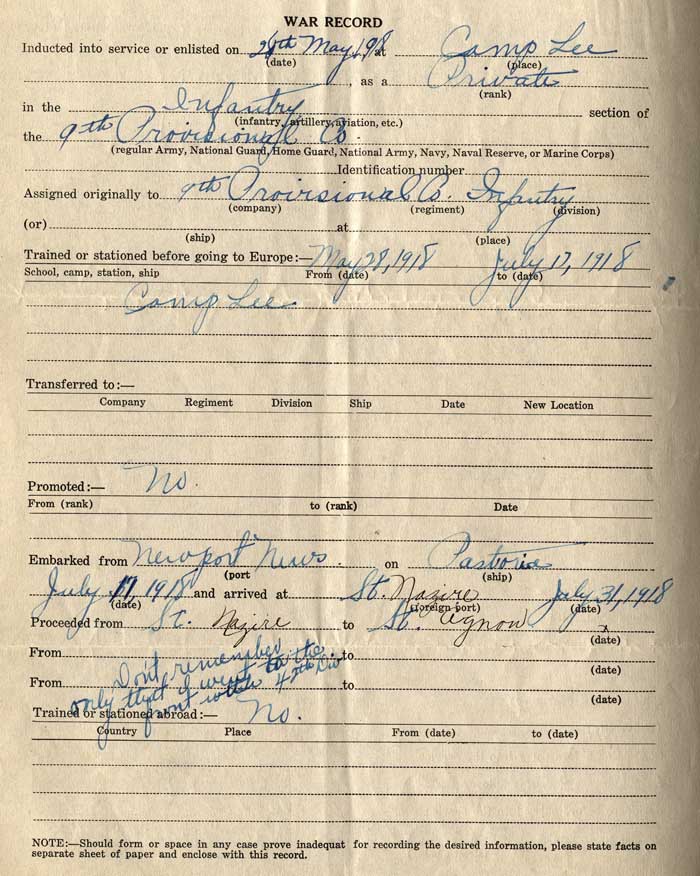 WAR RECORD
Inducted into service or enlisted on 26th May, 1918 at Camp Lee
(date) (place)
, as a Private
(rank)
in the Infantry section of
(infantry, artillery, aviation, etc.)
the 9th Provisional Co.
(regular Army, National Guard, Home Guard, National Army, Navy, Naval Reserve, or Marine Corps)
Identification number
Assigned originally to 9th Provisional Co. Infantry
(company) (regiment) (division)
(or) at
(ship) (place)
Trained or stationed before going to Europe:— May 28, 1918 July 17, 1918
School, camp, station, ship From (date) to (date)
Camp Lee
Transferred to:—
Company Regiment Division Ship Date New Location
Promoted:— No.
From (rank) to (rank) Date
Embarked from Newport News. on Pastoria
(port (ship)
July 17, 1918 and arrived at St. Nazire July 31, 1918
(date) (foreign port) (date)
Proceeded from St. Nazire to St. Agnon
(date)
From Don't remember to
(date)
From only that I went to the front with 42th Div to
(date)
Trained or stationed abroad:— No.
Country Place From (date) to (date)
NOTE:—Should form or space in any case prove inadequat for recording the desired information, please state facts on
separate sheet of paper and enclose with this record.